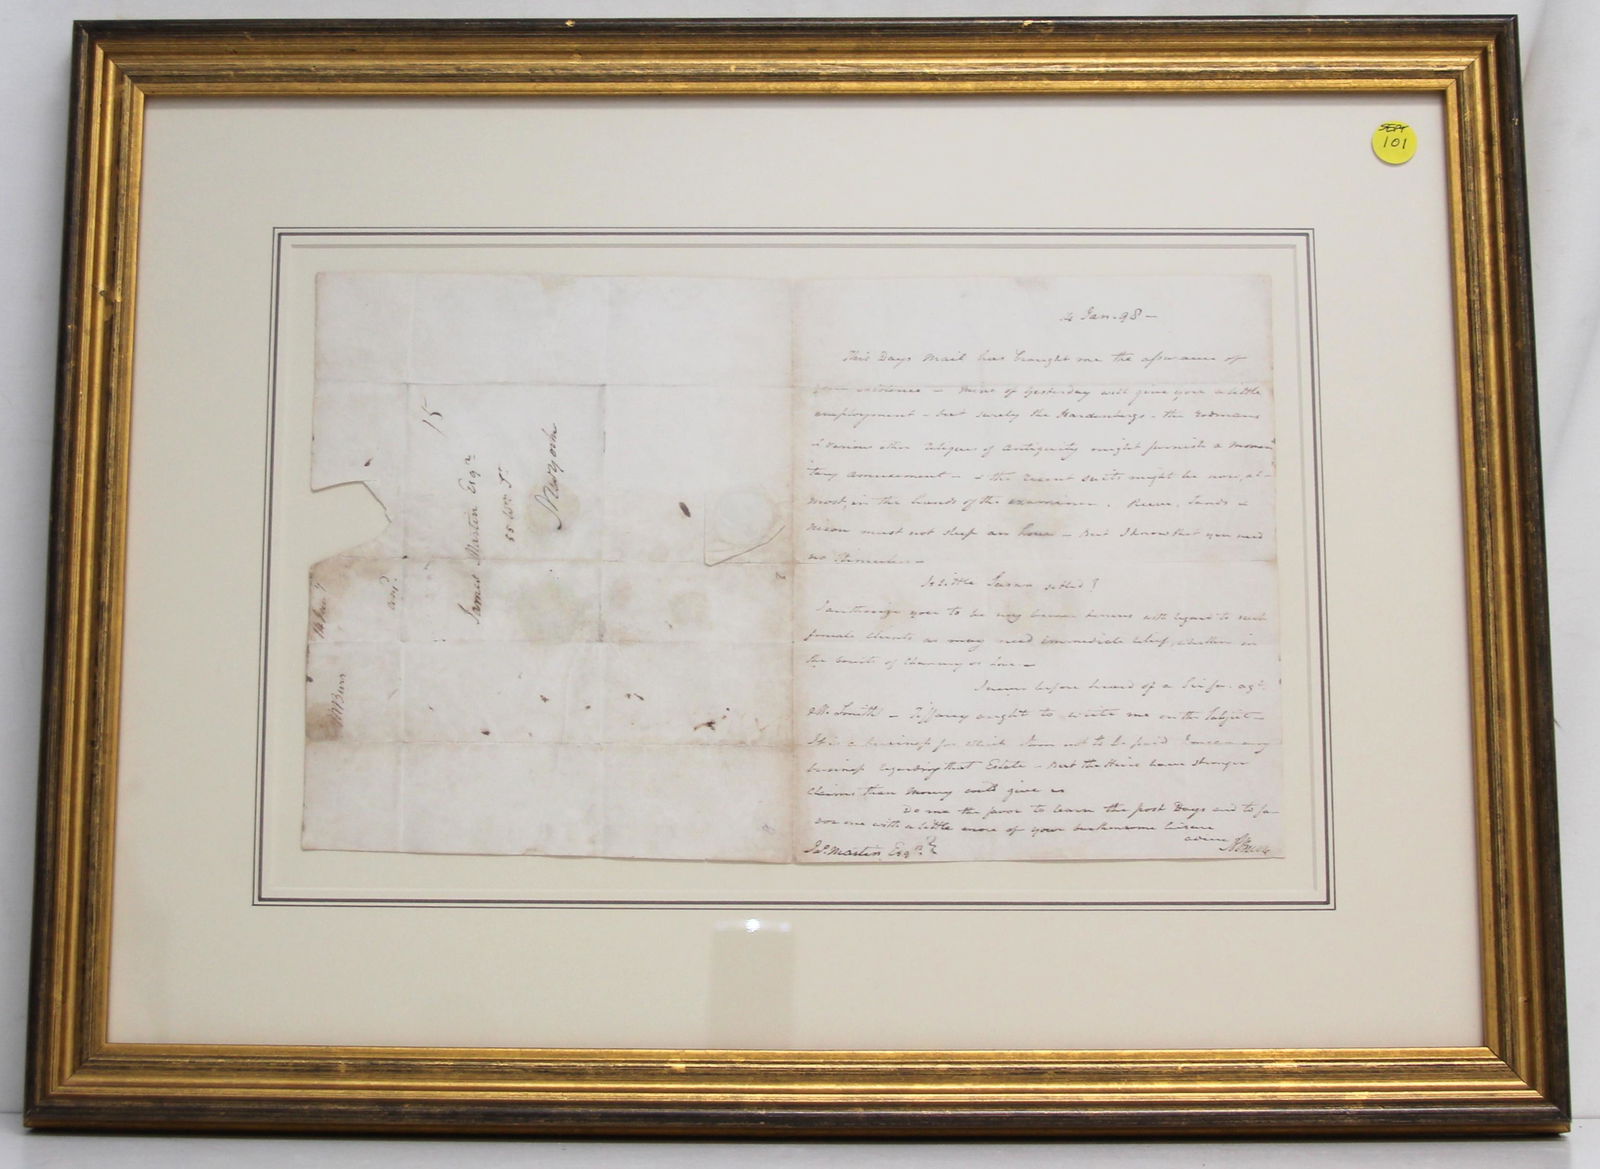 SEPT
101
14 Jan. 98 –
This Days Mail has brought me the assurance of
your existence – mine of yesterday will give you a little
employment – but surely the Hardenbergs – the Rodmans
& various other reliques of Antiquity might furnish a momen
tary amusement – & the recent suits might be now, al-
most, in the hands of the examiner. Reeve, Sands &
Nixon must not sleep an hour – But I know that you need
no Stimulus –
Is little Susan settled?
I authorize you to be my locum tenens with regard to such
female Clients as may need immediate relief, whether in
the Courts of Chancery or Love –
I never before heard of a agt.
Smith – Tiffany ought to write me on the Subject –
It is a business for which I am not to be paid any
business regarding that Estate – But the Heirs have stronger
claims than money could give us
Do me the favor to learn the post Days and to fa-
vor me with a little more of your burthensome leisure
adieu
A Burr
Jas. Martin Esqr.
15
James Martin Esqr.
55 Wm St.
New York
ansd.
14 Jany
A Burr